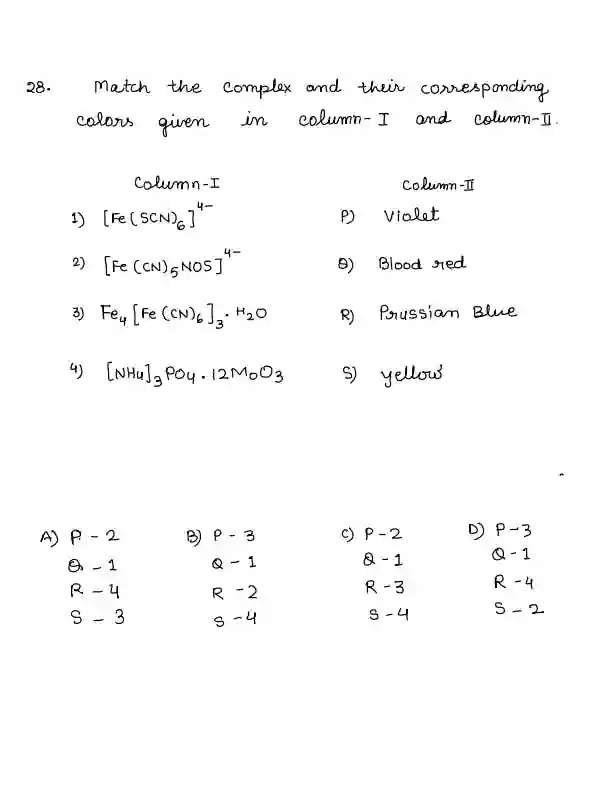 28. Match the complex and their corresponding
colors given in column-I and column-II.
Column-I Column-II
1) [Fe(SCN)6]4- P) Violet
2) [Fe(CN)5NOS]4- Q) Blood red
3) Fe4[Fe(CN)6]3.H2O R) Prussian Blue
4) [NH4]3PO4.12MoO3 S) yellow
A) P-2 B) P-3 C) P-2 D) P-3
Q-1 Q-1 Q-1 Q-1
R-4 R-2 R-3 R-4
S-3 S-4 S-4 S-2